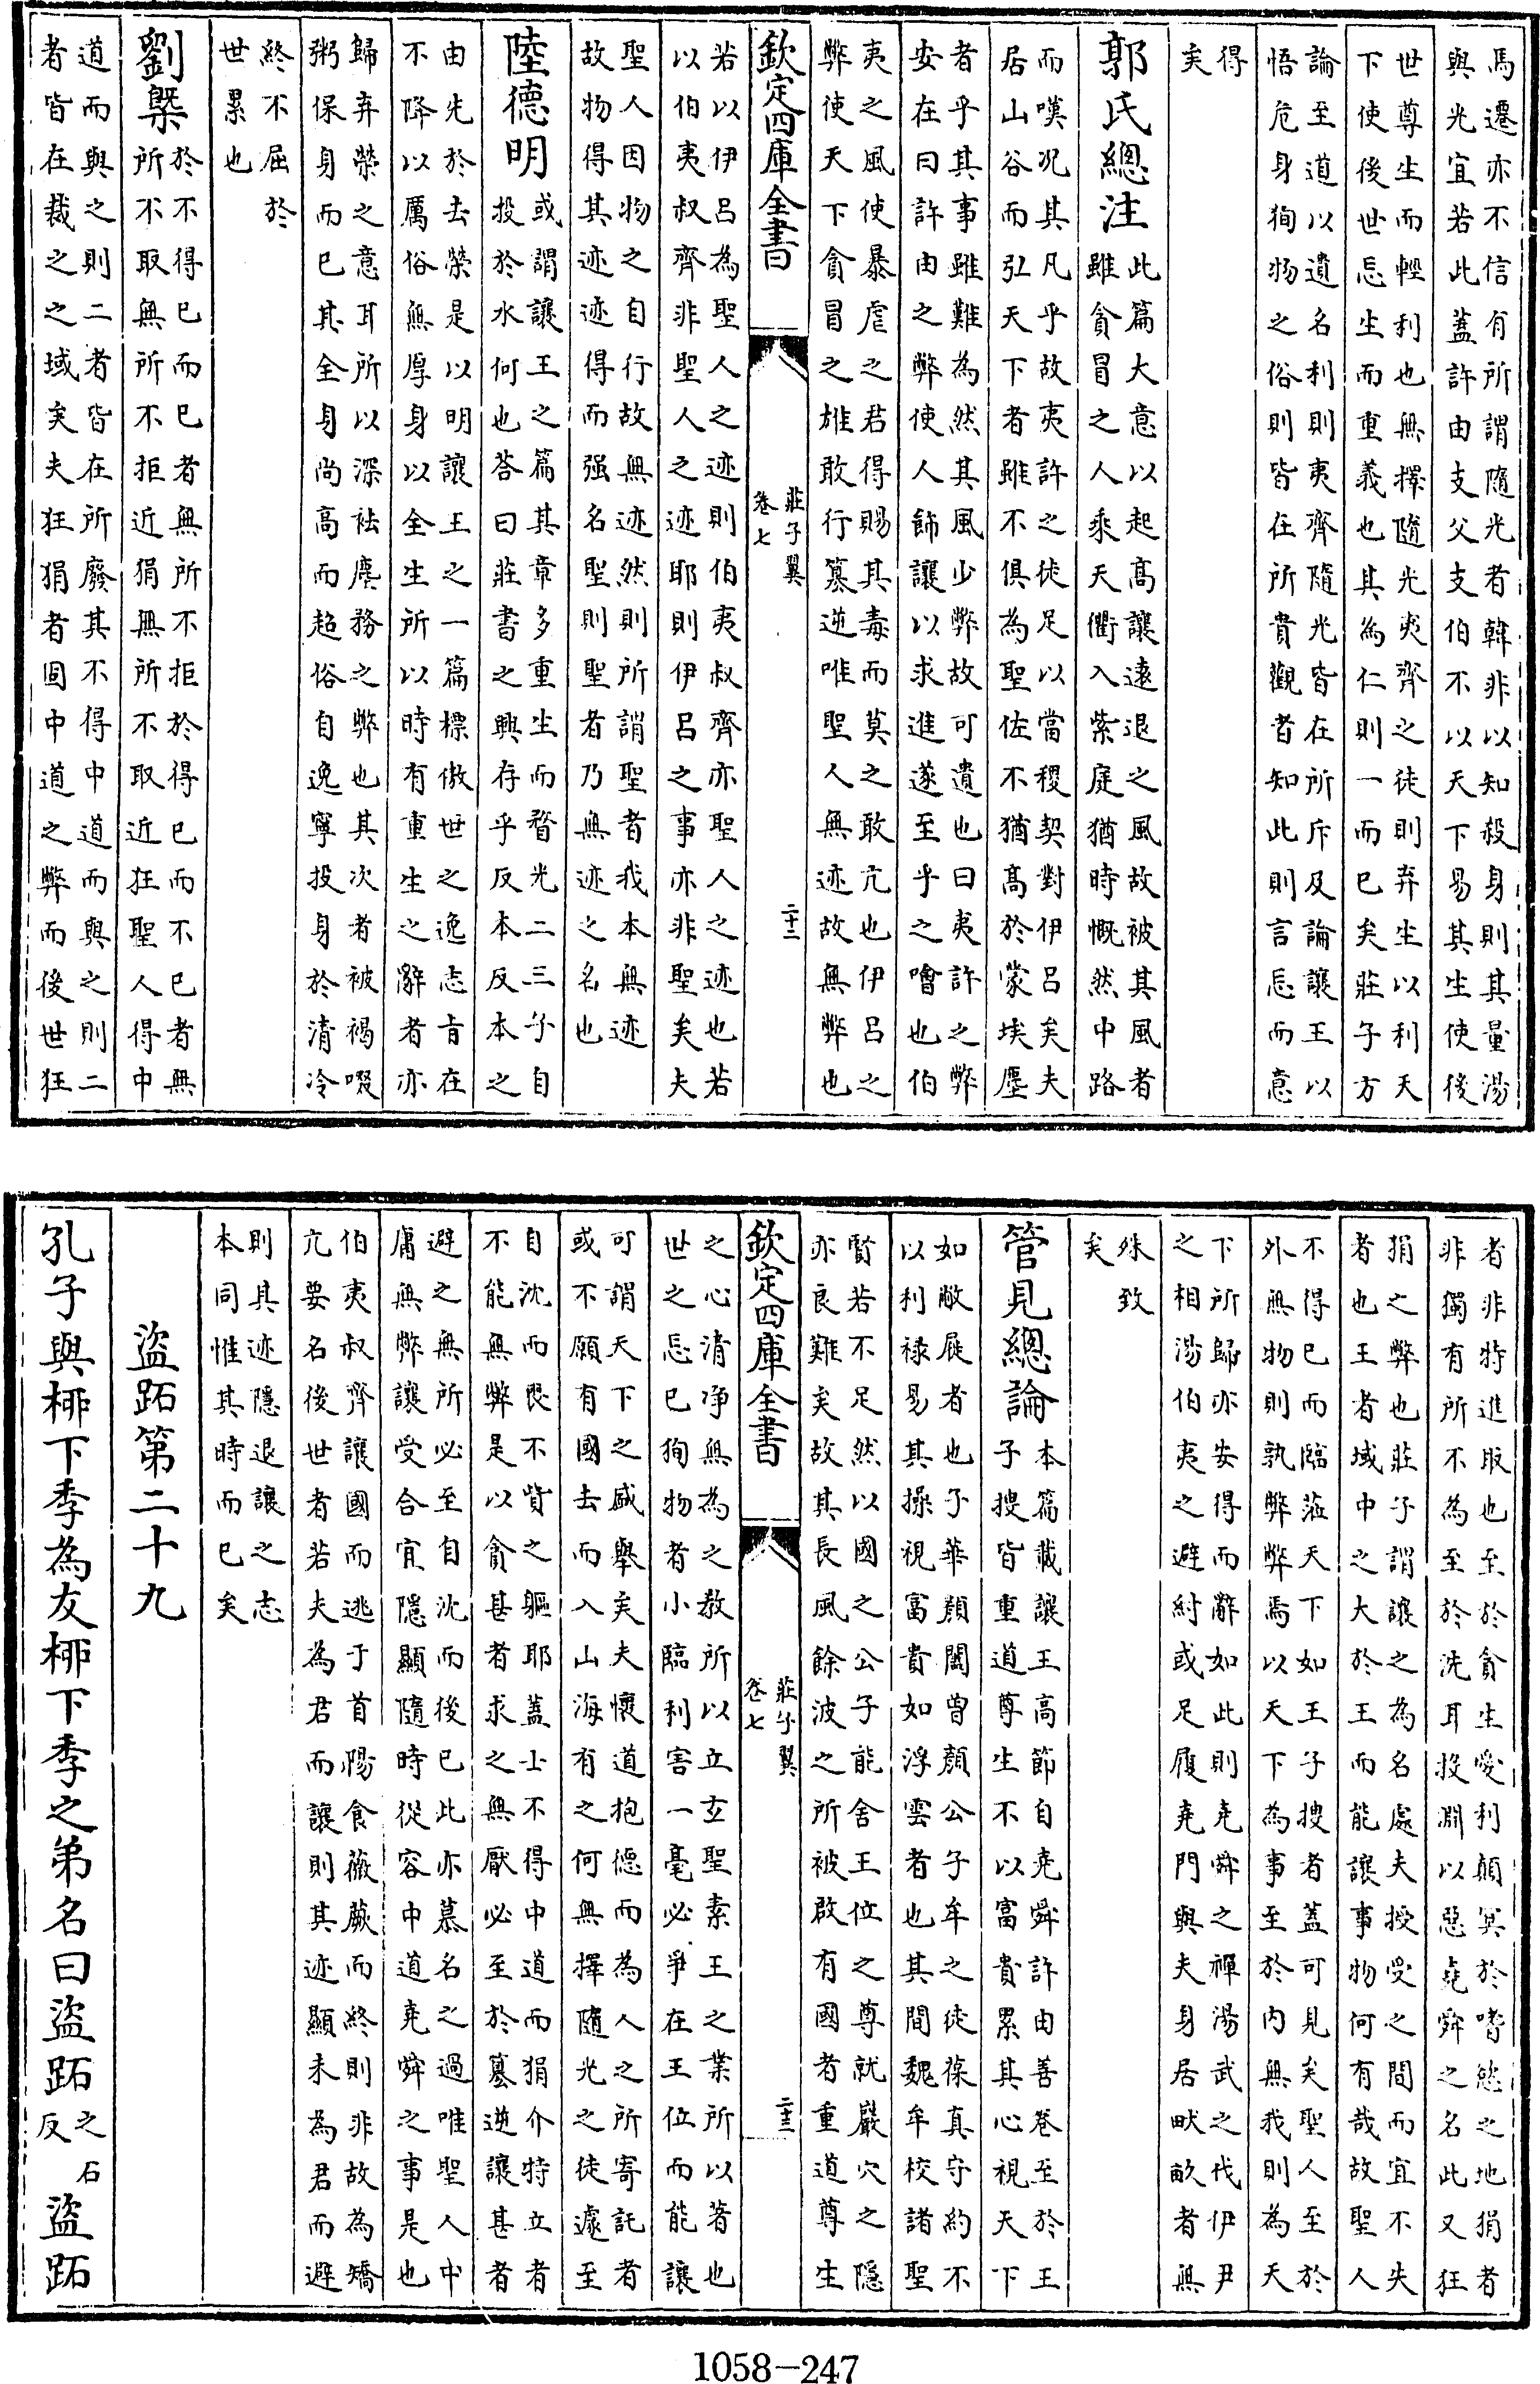 馬遷亦不信有所謂隨光者韓非以知殺身則其量湯
與光宜若此蓋許由支父支伯不以天下易其生使後
世尊生而輕利也無擇隨光夷齊之徒則弃生以利天
下使後世忘生而重義也其為仁則一而已矣莊子方
論至道以遺名利則夷齊隨光皆在所斥及論讓王以
悟危身狥物之俗則皆在所貴觀者知此則言忘而意
得
矣
郭氏總注
此篇大意以起高讓遠退之風故被其風者
雖貪冒之人乘天衢入紫庭猶時慨然中路
而嘆况其凡乎故夷許之徒足以當稷契對伊呂矣夫
居山谷而弘天下者雖不俱為聖佐不猶高於蒙埃塵
者乎其事雖難為然其風少弊故可遺也曰夷許之弊
安在曰許由之弊使人飾讓以求進遂至乎之噲也伯
夷之風使暴虐之君得賜其毒而莫之敢亢也伊呂之
弊使天下貪冒之雄敢行篡逆唯聖人無迹故無弊也
欽定四庫全書
莊子翼
卷七
二十二
若以伊呂為聖人之迹則伯夷叔齊亦聖人之迹也若
以伯夷叔齊非聖人之迹耶則伊呂之事亦非聖矣夫
聖人因物之自行故無迹然則所謂聖者我本無迹
故物得其迹迹得而强名聖則聖者乃無迹之名也
陸德明
或謂讓王之篇其章多重生而瞀光二三子自
投於水何也荅曰莊書之興存乎反本反本之
由先於去榮是以明讓王之一篇標傲世之逸志旨在
不降以厲俗無厚身以全生所以時有重生之辭者亦
歸弃榮之意耳所以深祛塵務之弊也其次者被褐啜
粥保身而已其全身尚高而超俗自逸寧投身於清泠
終不屈於
世累也
劉槩
於不得已而已者無所不拒於得已而不已者無
所不取無所不拒近狷無所不取近狂聖人得中
道而與之則二者皆在所廢其不得中道而與之則二
者皆在裁之之域矣夫狂狷者固中道之弊而後世狂
者非特進取也至於貪生愛利顛冥於嗜慾之地狷者
非獨有所不為至於洗耳投淵以惡堯舜之名此又狂
狷之弊也莊子謂讓之為名處夫授受之間而宜不失
者也王者域中之大於王而能讓事物何有哉故聖人
不得已而臨蒞天下如王子搜者蓋可見矣聖人至於
外無物則孰弊弊焉以天下為事至於内無我則為天
下所歸亦安得而辭如此則堯舜之禪湯武之伐伊尹
之相湯伯夷之避紂或足履堯門與夫身居畎畝者無
殊致
矣
管見總論
本篇載讓王高節自堯舜許由善卷至於王
子搜皆重道尊生不以富貴累其心視天下
如敝屣者也子華顏闔曾顏公子牟之徒葆真守約不
以利祿易其操視富貴如浮雲者也其間魏牟校諸聖
賢若不足然以國之公子能舍王位之尊就巖穴之隱
亦良難矣故其長風餘波之所被啟有國者重道尊生
欽定四庫全書
莊子翼
卷七
二十三
之心清净無為之教所以立玄聖素王之業所以著也
世之忘已狥物者小臨利害一毫必爭在王位而能讓
可謂天下之威舉矣夫懷道抱德而為人之所寄託者
或不願有國去而入山海有之何無擇隨光之徒遽至
自沈而畏不貲之軀耶蓋士不得中道而狷介特立者
不能無弊是以貪甚者求之無厭必至於簒逆讓甚者
避之無所必至自沈而後已此亦慕名之過唯聖人中
庸無弊讓受合宜隱顯隨時從容中道堯舜之事是也
伯夷叔齊讓國而逃于首陽食薇蕨而終則非故為矯
亢要名後世者若夫為君而讓則其迹顯未為君而避
則其迹隱退讓之志
本同惟其時而已矣
盜跖第二十九
孔子與栁下季為友栁下季之弟名曰盜跖
之石
反
盜跖
1058-247